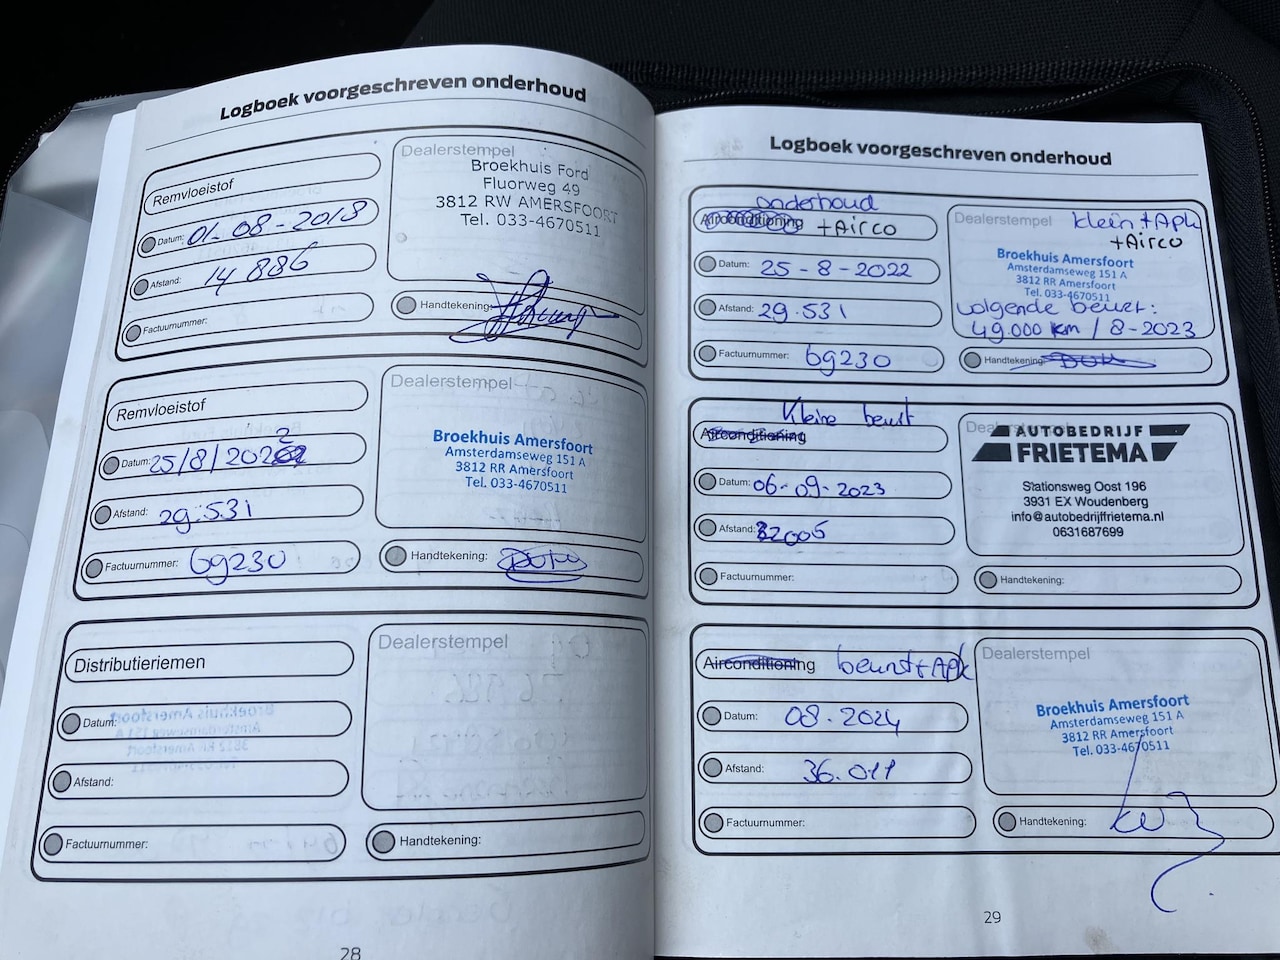 Logboek voorgeschreven onderhoud
Remvloeistof
Datum: 01-08-2018
Afstand: 14 886
Factuurnummer:
Dealerstempel
Broekhuis Ford
Fluorweg 49
3812 RW AMERSFOORT
Tel. 033-4670511
Handtekening:
Remvloeistof
2
Datum: 25/8/202
Afstand: 29.531
Factuurnummer: 69230
Dealerstempel
Broekhuis Amersfoort
Amsterdamseweg 151 A
3812 RR Amersfoort
Tel. 033-4670511
Handtekening:
Distributieriemen
Datum:
Afstand:
Factuurnummer:
Dealerstempel
Handtekening:
28
Logboek voorgeschreven onderhoud
onderhoud
Airconditioning + Airco
Datum: 25-8-2022
Afstand: 29.531
Factuurnummer: 69230
Dealerstempel klein + Apk
+ Airco
Broekhuis Amersfoort
Amsterdamseweg 151 A
3812 RR Amersfoort
Tel. 033-4670511
volgende beurt:
49.000 km / 8-2023
Handtekening:
Kleine beurt
Airconditioning
Datum: 06-09-2023
Afstand: 32005
Factuurnummer:
Dealerstempel
AUTOBEDRIJF
FRIETEMA
Stationsweg Oost 196
3931 EX Woudenberg
info@autobedrijffrietema.nl
0631687699
Handtekening:
Airconditioning beurt + Apk
Datum: 08-2024
Afstand: 36.011
Factuurnummer:
Dealerstempel
Broekhuis Amersfoort
Amsterdamseweg 151 A
3812 RR Amersfoort
Tel. 033-4670511
Handtekening:
29